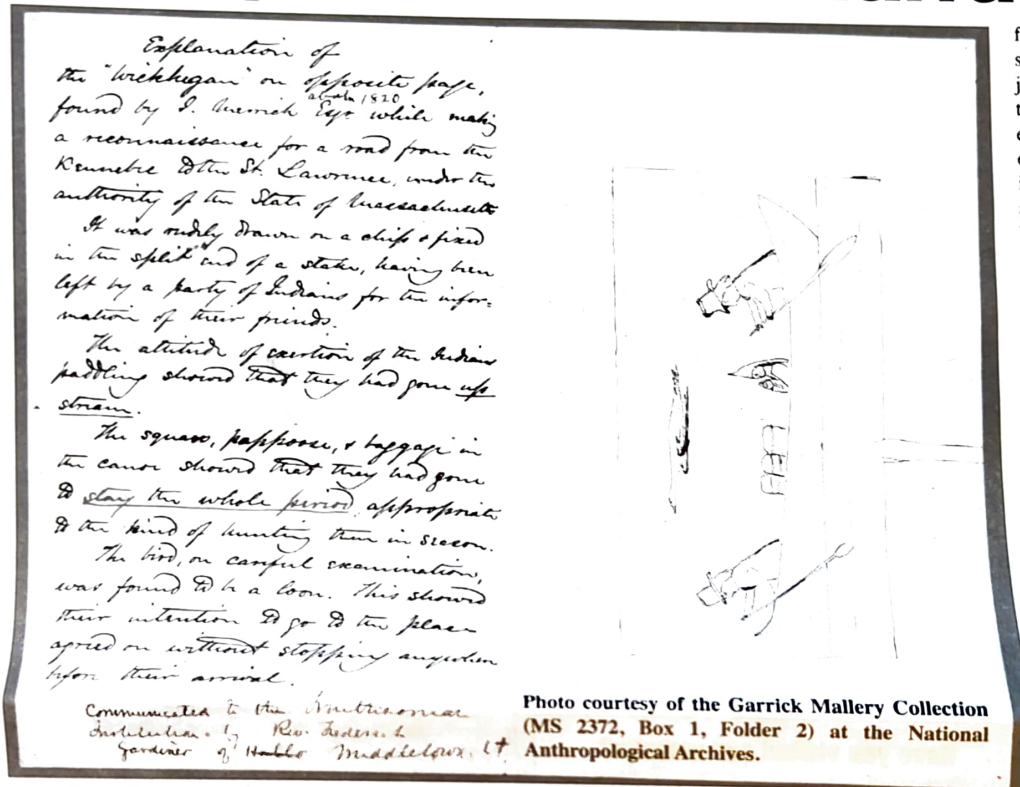 Explanation of
the "Wickhegan" on opposite page,
about 1820
found by J. Merrick Esqr while making
a reconnaissance for a road from the
Kennebec to the St. Lawrence, under the
authority of the State of Massachusetts
It was rudely drawn on a chip & fixed
in the split end of a stake, having been
left by a party of Indians for the infor=
mation of their friends.
The attitude of exertion of the Indians
paddling showed that they had gone up
stream.
The squaw, pappoose, & baggage in
the canoe showed that they had gone
to stay the whole period appropriate
to the kind of hunting then in season.
The bird, on careful examination,
was found to be a loon. This showed
their intention to go to the place
agreed on without stopping anywhere
before their arrival.
Communicated to the Smithsonian
Institution by Rev. Frederick
Gardiner of Middletown, Ct
Photo courtesy of the Garrick Mallery Collection
(MS 2372, Box 1, Folder 2) at the National
Anthropological Archives.